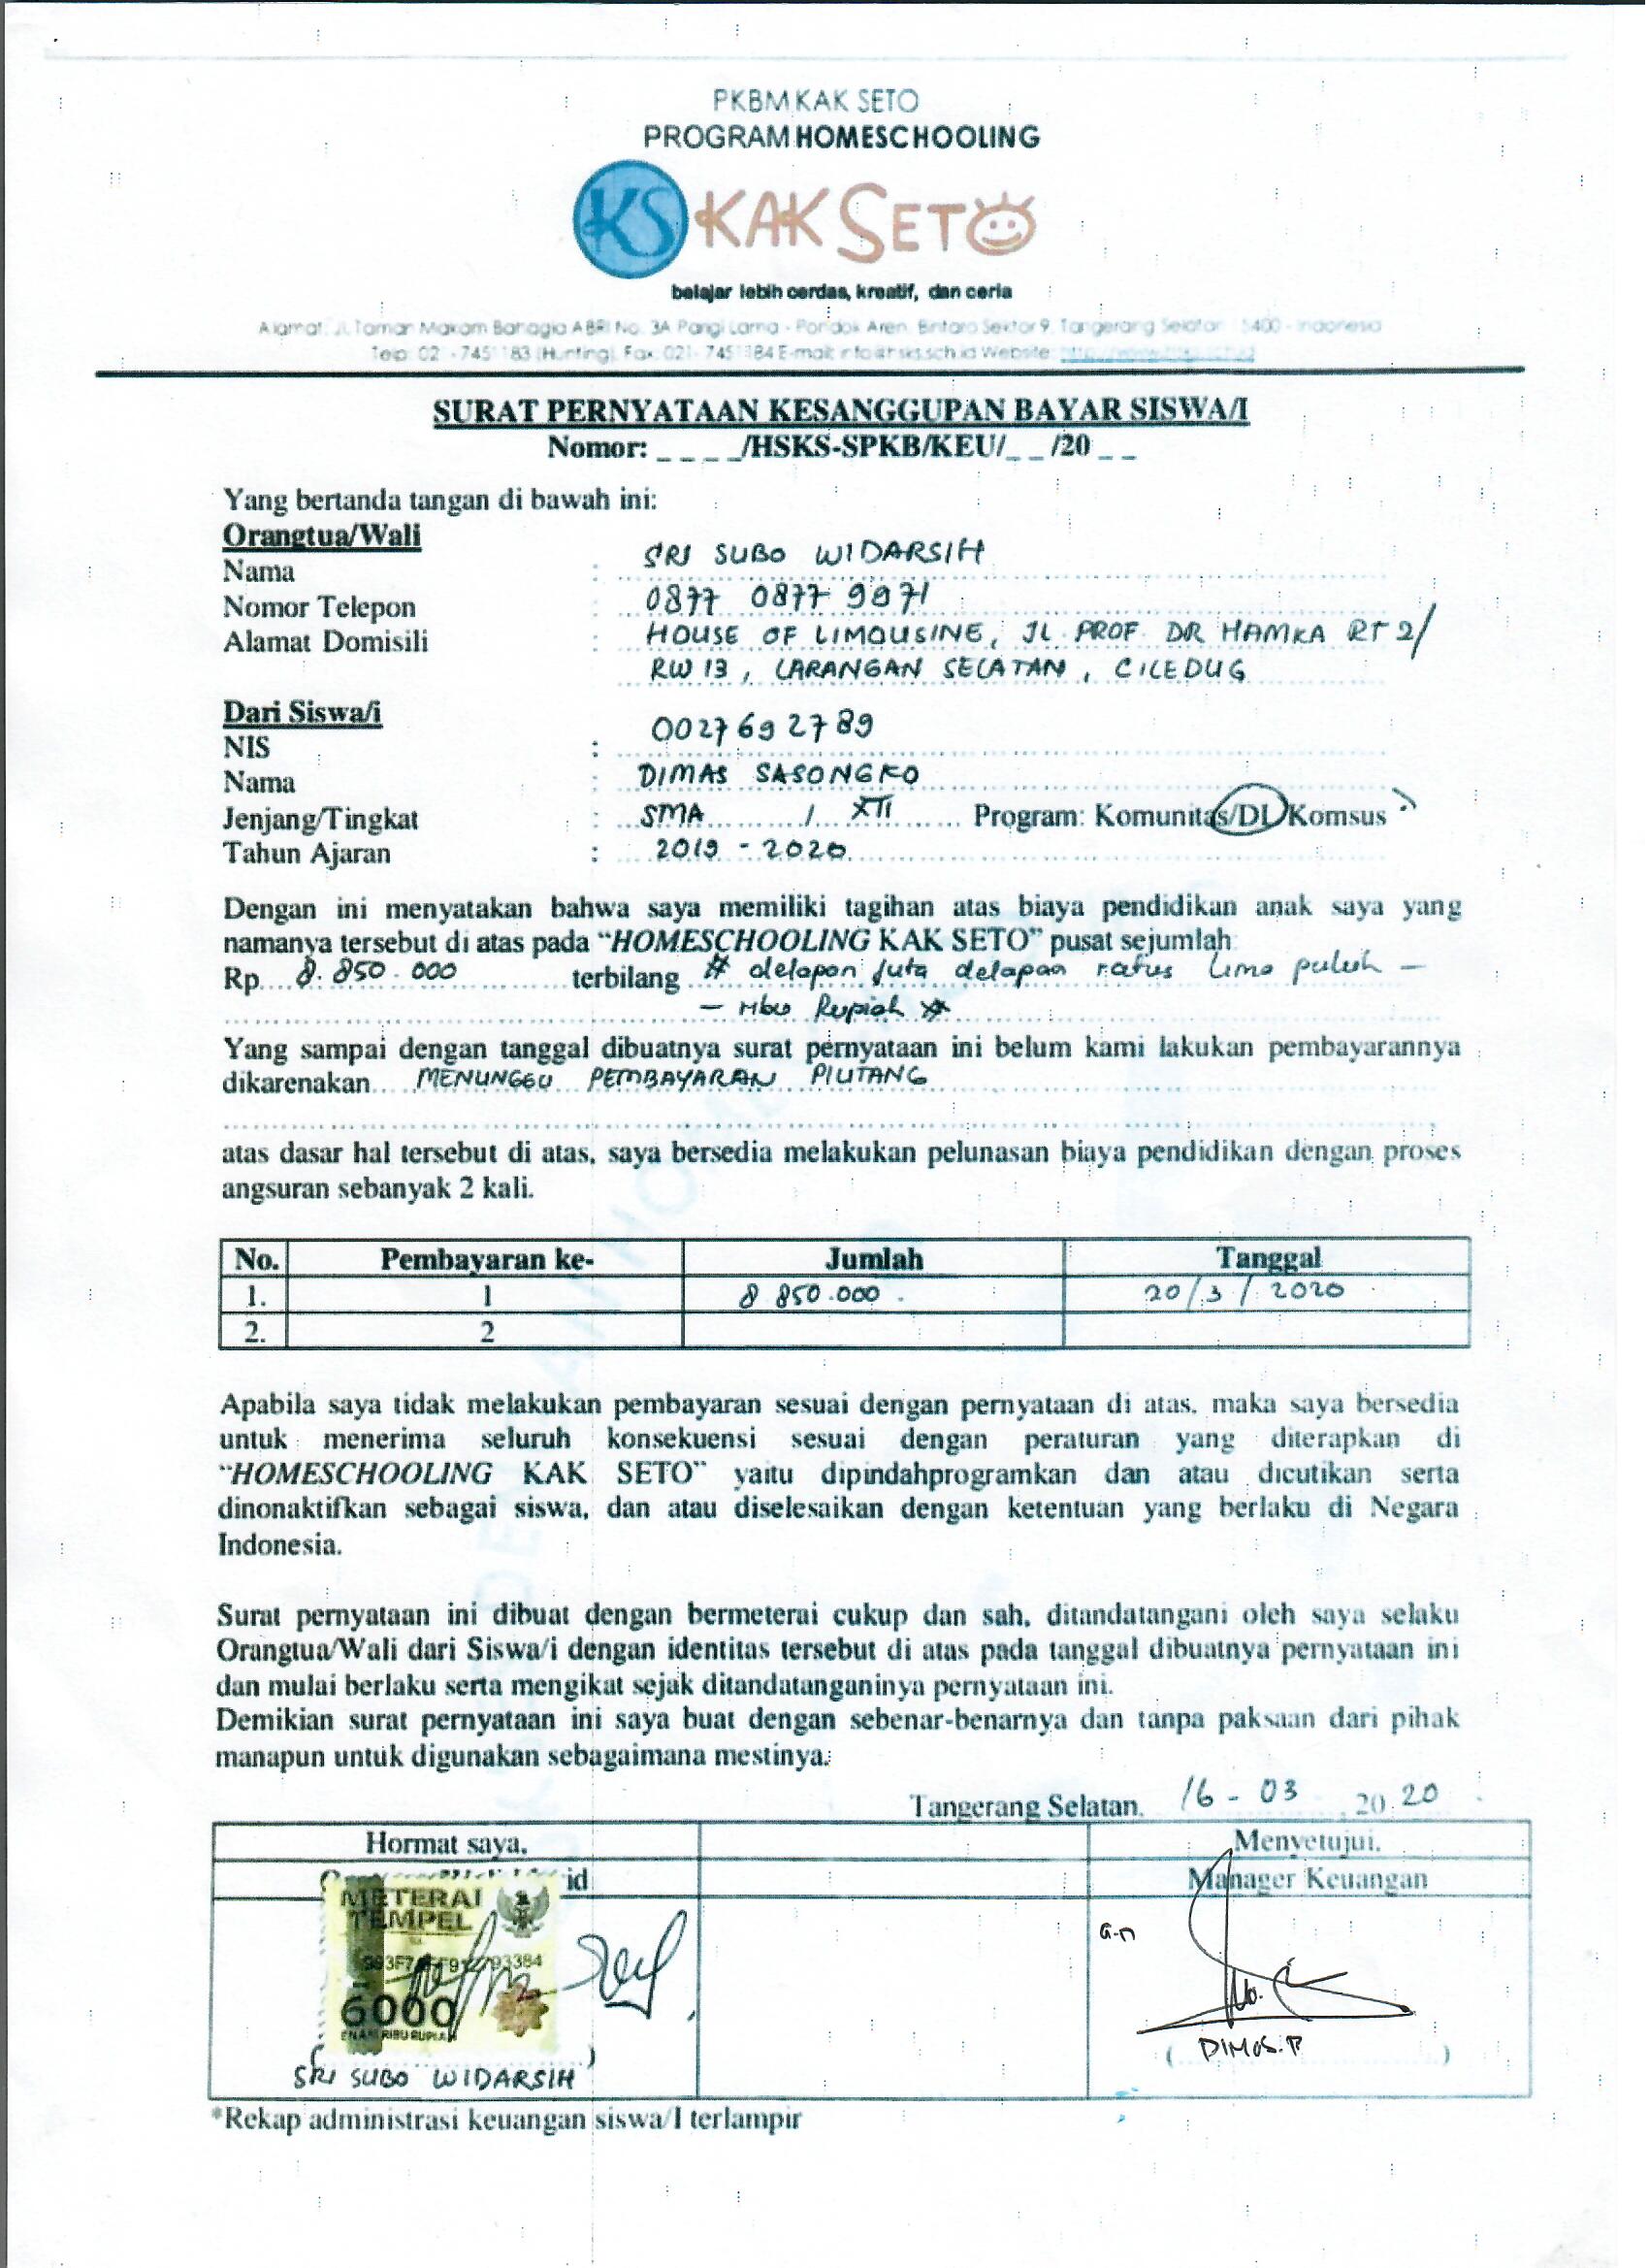 PKBM KAK SETO
PROGRAM HOMESCHOOLING
KS KAK SETO
belajar lebih cerdas, kreatif, dan ceria
Alamat: Jl. Taman Makam Bahagia ABRI No. 3A Parigi Lama - Pondok Aren, Bintaro Sektor 9, Tangerang Selatan 15400 - Indonesia
Telp: 02 - 7451183 (Hunting), Fax: 021- 7451184 E-mail: info@hsks.sch.id Website:
SURAT PERNYATAAN KESANGGUPAN BAYAR SISWA/I
Nomor: _ _ _ _/HSKS-SPKB/KEU/_ _ /20 _ _
Yang bertanda tangan di bawah ini:
Orangtua/Wali
Nama : SRI SUBO WIDARSIH
Nomor Telepon : 0877 0877 9971
Alamat Domisili : HOUSE OF LIMOUSINE, JL PROF DR HAMKA RT 2/
RW 13, LARANGAN SELATAN, CILEDUG
Dari Siswa/i
NIS : 0027692789
Nama : DIMAS SASONGKO
Jenjang/Tingkat : SMA / XII Program: Komunitas/DL/Komsus
Tahun Ajaran : 2019 - 2020
Dengan ini menyatakan bahwa saya memiliki tagihan atas biaya pendidikan anak saya yang
namanya tersebut di atas pada “HOMESCHOOLING KAK SETO” pusat sejumlah
Rp 8.850.000 terbilang # delapan juta delapan ratus lima puluh -
- ribu Rupiah #
Yang sampai dengan tanggal dibuatnya surat pernyataan ini belum kami lakukan pembayarannya
dikarenakan MENUNGGU PEMBAYARAN PIUTANG
atas dasar hal tersebut di atas, saya bersedia melakukan pelunasan biaya pendidikan dengan proses
angsuran sebanyak 2 kali.
No. Pembayaran ke- Jumlah Tanggal
1. 1 8 850.000 20/3/2020
2. 2
Apabila saya tidak melakukan pembayaran sesuai dengan pernyataan di atas, maka saya bersedia
untuk menerima seluruh konsekuensi sesuai dengan peraturan yang diterapkan di
“HOMESCHOOLING KAK SETO” yaitu dipindahprogramkan dan atau dicutikan serta
dinonaktifkan sebagai siswa, dan atau diselesaikan dengan ketentuan yang berlaku di Negara
Indonesia.
Surat pernyataan ini dibuat dengan bermeterai cukup dan sah, ditandatangani oleh saya selaku
Orangtua/Wali dari Siswa/i dengan identitas tersebut di atas pada tanggal dibuatnya pernyataan ini
dan mulai berlaku serta mengikat sejak ditandatanganinya pernyataan ini.
Demikian surat pernyataan ini saya buat dengan sebenar-benarnya dan tanpa paksaan dari pihak
manapun untuk digunakan sebagaimana mestinya.
Tangerang Selatan, 16 - 03 , 20 20
Hormat saya, Menyetujui,
Manager Keuangan
METERAI
TEMPEL
6000
ENAM RIBU RUPIAH
a.n
DIMAS.P
SRI SUBO WIDARSIH
*Rekap administrasi keuangan siswa/I terlampir